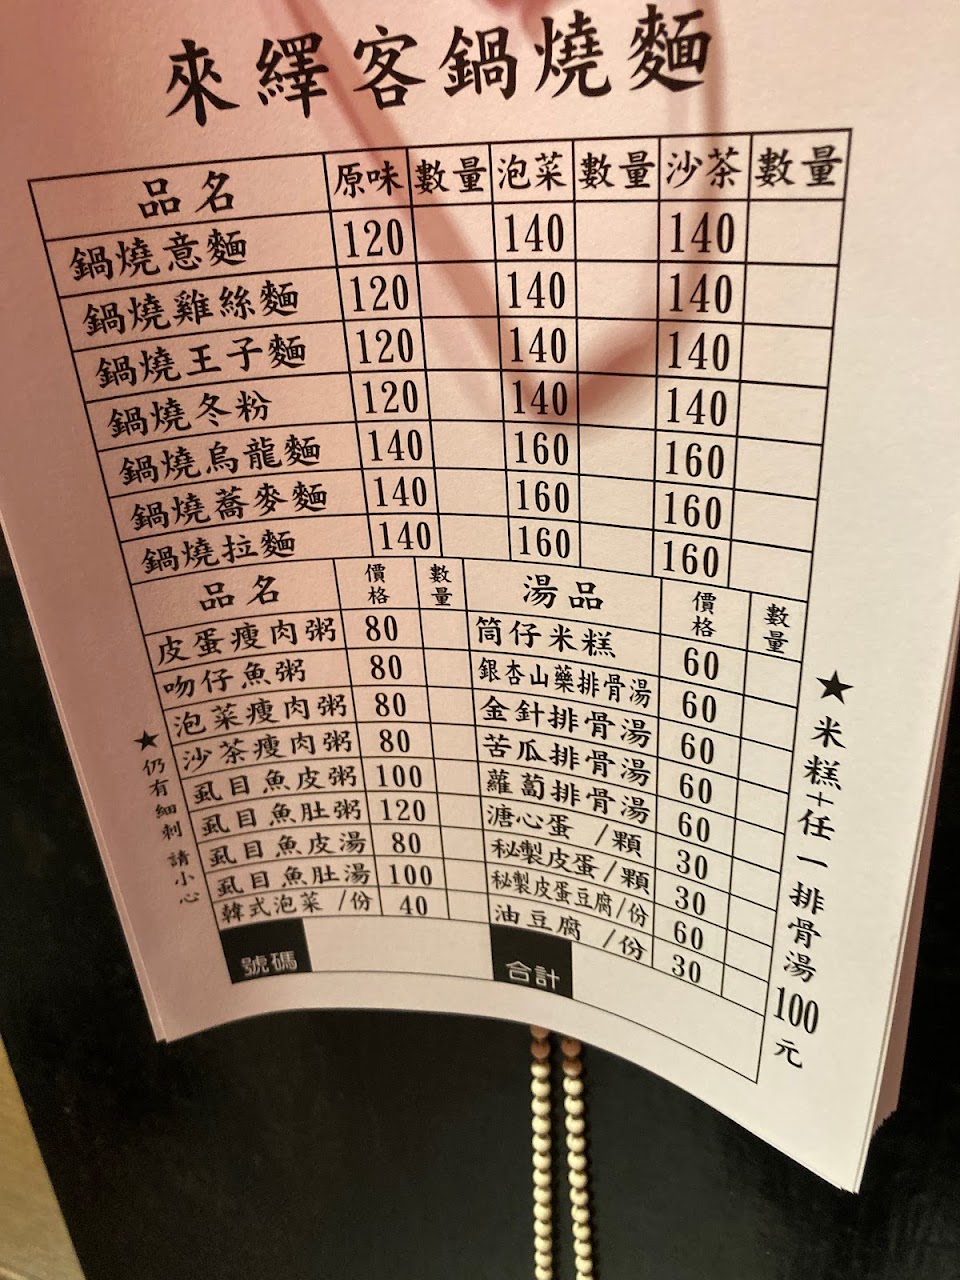 來繹客鍋燒麵
品名 原味 數量 泡菜 數量 沙茶 數量
鍋燒意麵 120 140 140
鍋燒雞絲麵 120 140 140
鍋燒王子麵 120 140 140
鍋燒冬粉 120 140 140
鍋燒烏龍麵 140 160 160
鍋燒蕎麥麵 140 160 160
鍋燒拉麵 140 160 160
品名 價格 數量 湯品 價格 數量
皮蛋瘦肉粥 80 筒仔米糕 60
吻仔魚粥 80 銀杏山藥排骨湯 60
泡菜瘦肉粥 80 金針排骨湯 60
沙茶瘦肉粥 80 苦瓜排骨湯 60
虱目魚皮粥 100 蘿蔔排骨湯 60
虱目魚肚粥 120 溏心蛋 /顆 30
虱目魚皮湯 80 秘製皮蛋/顆 30
虱目魚肚湯 100 秘製皮蛋豆腐/份 60
韓式泡菜 /份 40 油豆腐 /份 30
號碼 合計
★仍有細刺 請小心
★米糕+任一排骨湯100元